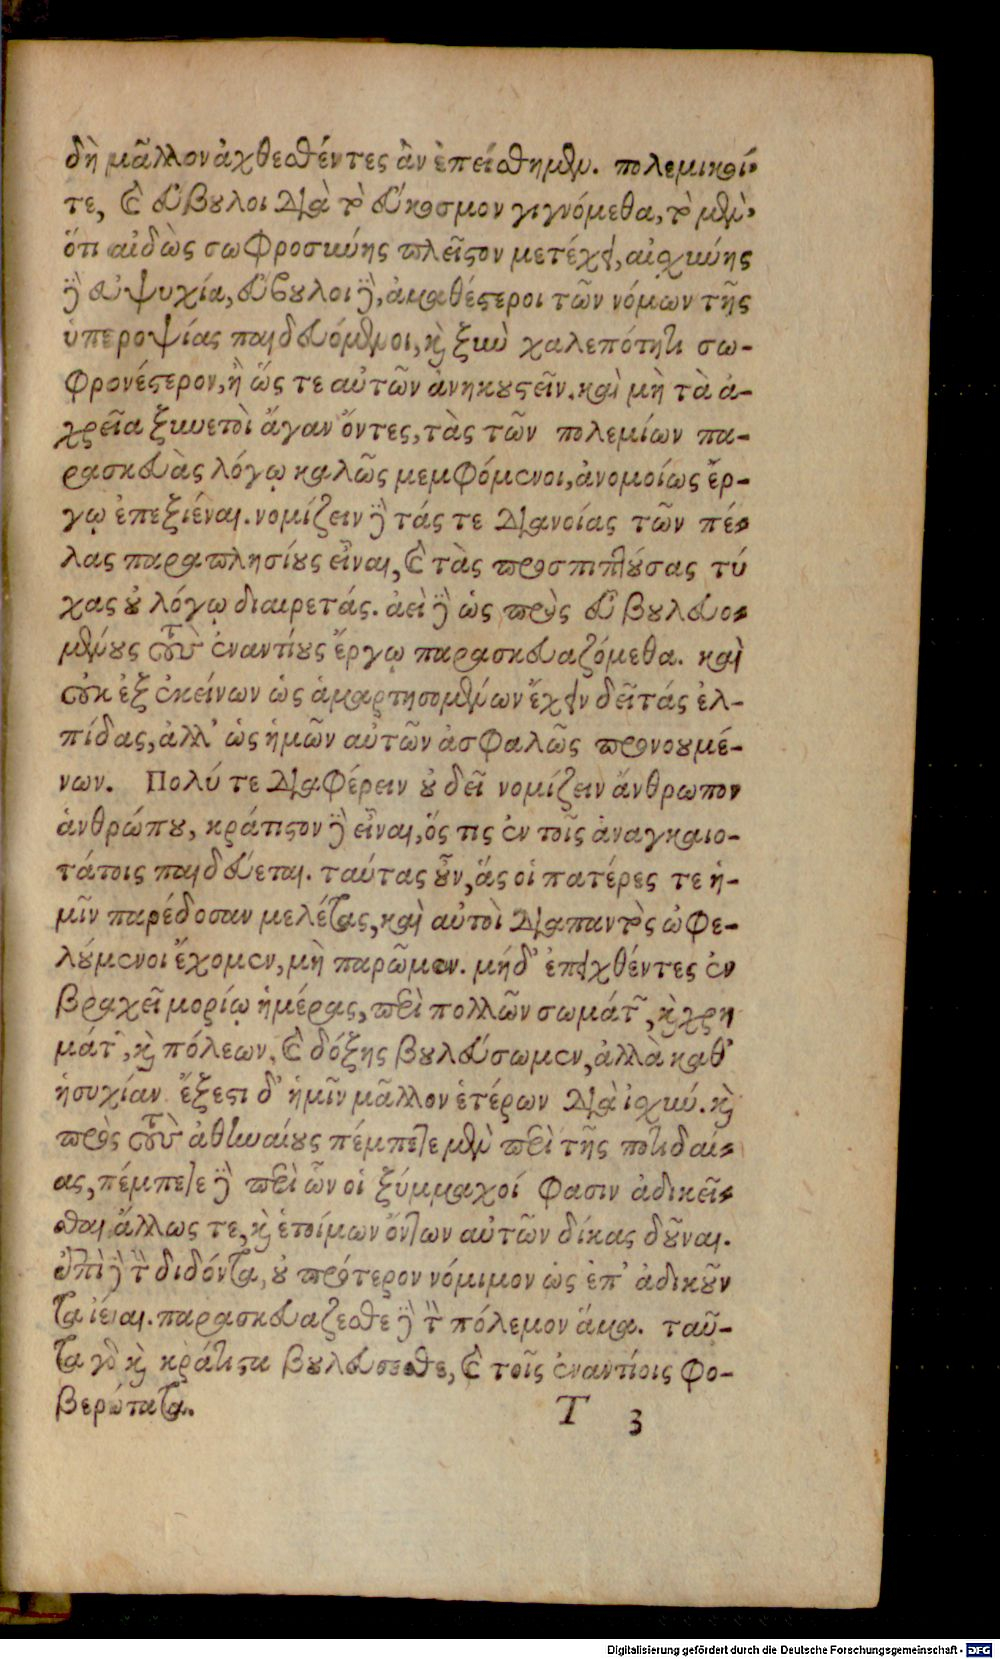 δὴ μᾶλλον ἀχθεσθέντες ἂν ἐπείσθημεν. πολεμικοί
τε, καὶ εὔβουλοι διὰ τὸ εὔκοσμον γιγνόμεθα, τὸ μὲν
ὅτι αἰδὼς σωφροσύνης πλεῖστον μετέχει, αἰσχύνης
δὲ εὐψυχία, εὔβουλοι δὲ, ἀμαθέστεροι τῶν νόμων τῆς
ὑπεροψίας παιδευόμενοι, καὶ ξὺν χαλεπότητι σω-
φρονέστερον, ἢ ὥς τε αὐτῶν ἀνηκουστεῖν. καὶ μὴ τὰ ἀ-
χρεῖα ξυνετοὶ ἄγαν ὄντες, τὰς τῶν πολεμίων πα-
ρασκευὰς λόγῳ καλῶς μεμφόμενοι, ἀνομοίως ἔρ-
γῳ ἐπεξιέναι. νομίζειν δὲ τάς τε διανοίας τῶν πέ-
λας παραπλησίους εἶναι, καὶ τὰς προσπιπτούσας τύ
χας οὐ λόγῳ διαιρετάς. ἀεὶ δὲ ὡς πρὸς εὖ βουλευο-
μένους τοὺς ἐναντίους ἔργῳ παρασκευαζόμεθα. καὶ
οὐκ ἐξ ἐκείνων ὡς ἁμαρτησομένων ἔχειν δεῖ τάς ἐλ-
πίδας, ἀλλ' ὡς ἡμῶν αὐτῶν ἀσφαλῶς προνουμέ-
νων. Πολύ τε διαφέρειν οὐ δεῖ νομίζειν ἄνθρωπον
ἀνθρώπου, κράτιστον δὲ εἶναι, ὅς τις ἐν τοῖς ἀναγκαιο-
τάτοις παιδεύεται. ταύτας οὖν, ἅς οἱ πατέρες τε ἡ-
μῖν παρέδοσαν μελέτας, καὶ αὐτοὶ διαπαντὸς ὠφε-
λούμενοι ἔχομεν, μὴ παρῶμεν. μήδ' ἐπειχθέντες ἐν
βραχεῖ μορίῳ ἡμέρας, περὶ πολλῶν σωμάτων, καὶ χρη
μάτων, καὶ πόλεων, καὶ δόξης βουλεύσωμεν, ἀλλὰ καθ'
ἡσυχίαν ἔξεστι δ' ἡμῖν μᾶλλον ἑτέρων διὰ ἰσχύν. καὶ
πρὸς τοὺς ἀθηναίους πέμπετε μὲν περὶ τῆς ποτιδαί-
ας, πέμπετε δὲ περὶ ὧν οἱ ξύμμαχοί φασιν ἀδικεῖ-
σθαι ἄλλως τε, καὶ ἑτοίμων ὄντων αὐτῶν δίκας δοῦναι.
ἐπὶ δὲ τὸν διδόντα, οὐ πρότερον νόμιμον ὡς ἐπ' ἀδικοῦν
τα ἰέναι. παρασκευάζεσθε δὲ τὸν πόλεμον ἅμα. ταῦ-
τα γὰρ καὶ κράτιστα βουλεύσεσθε, καὶ τοῖς ἐναντίοις φο-
βερώτατα.
T 3
Digitalisierung gefördert durch die Deutsche Forschungsgemeinschaft - DFG